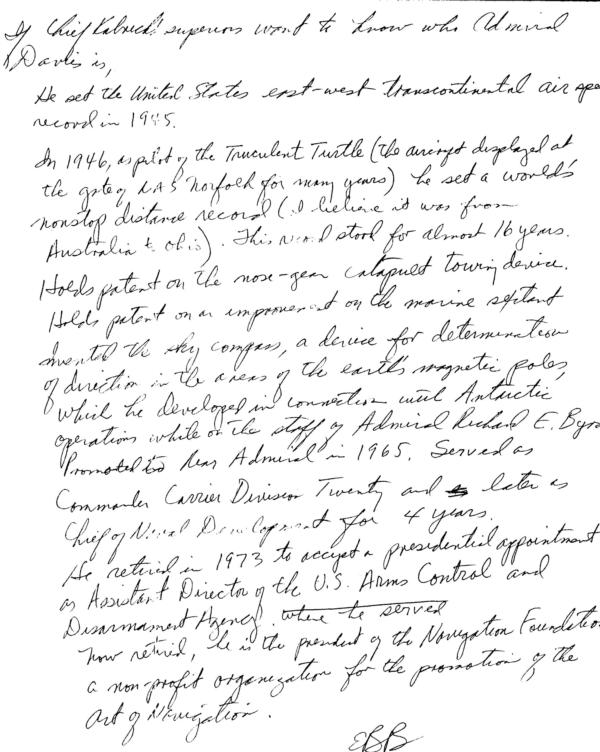 If Chief superiors want to know who Admiral
Davis is,
He set the United States east-west transcontinental air spe
record in 1945.
In 1946, as pilot of the Truculent Turtle (the aircraft displayed at
the gate of NAS Norfolk for many years) he set a world's
nonstop distance record (I believe it was from
Australia to Ohio). This record stood for almost 16 years.
Holds patent on the nose-gear catapult towing device.
Holds patent on an improvement on the marine sextant
Invented the sky compass, a device for determination
of direction in the areas of the earth's magnetic poles,
which he developed in connection with Antarctic
operations while on the staff of Admiral Richard E. Byrd
Promoted to Rear Admiral in 1965. Served as
Commander Carrier Division Twenty and later as
Chief of Naval Development for 4 years.
He retired in 1973 to accept a presidential appointment
as Assistant Director of the U.S. Arms Control and
Disarmament Agency. where he served
Now retired, he is the president of the Navigation Foundation
a non-profit organization for the promotion of the
art of Navigation.
EBB